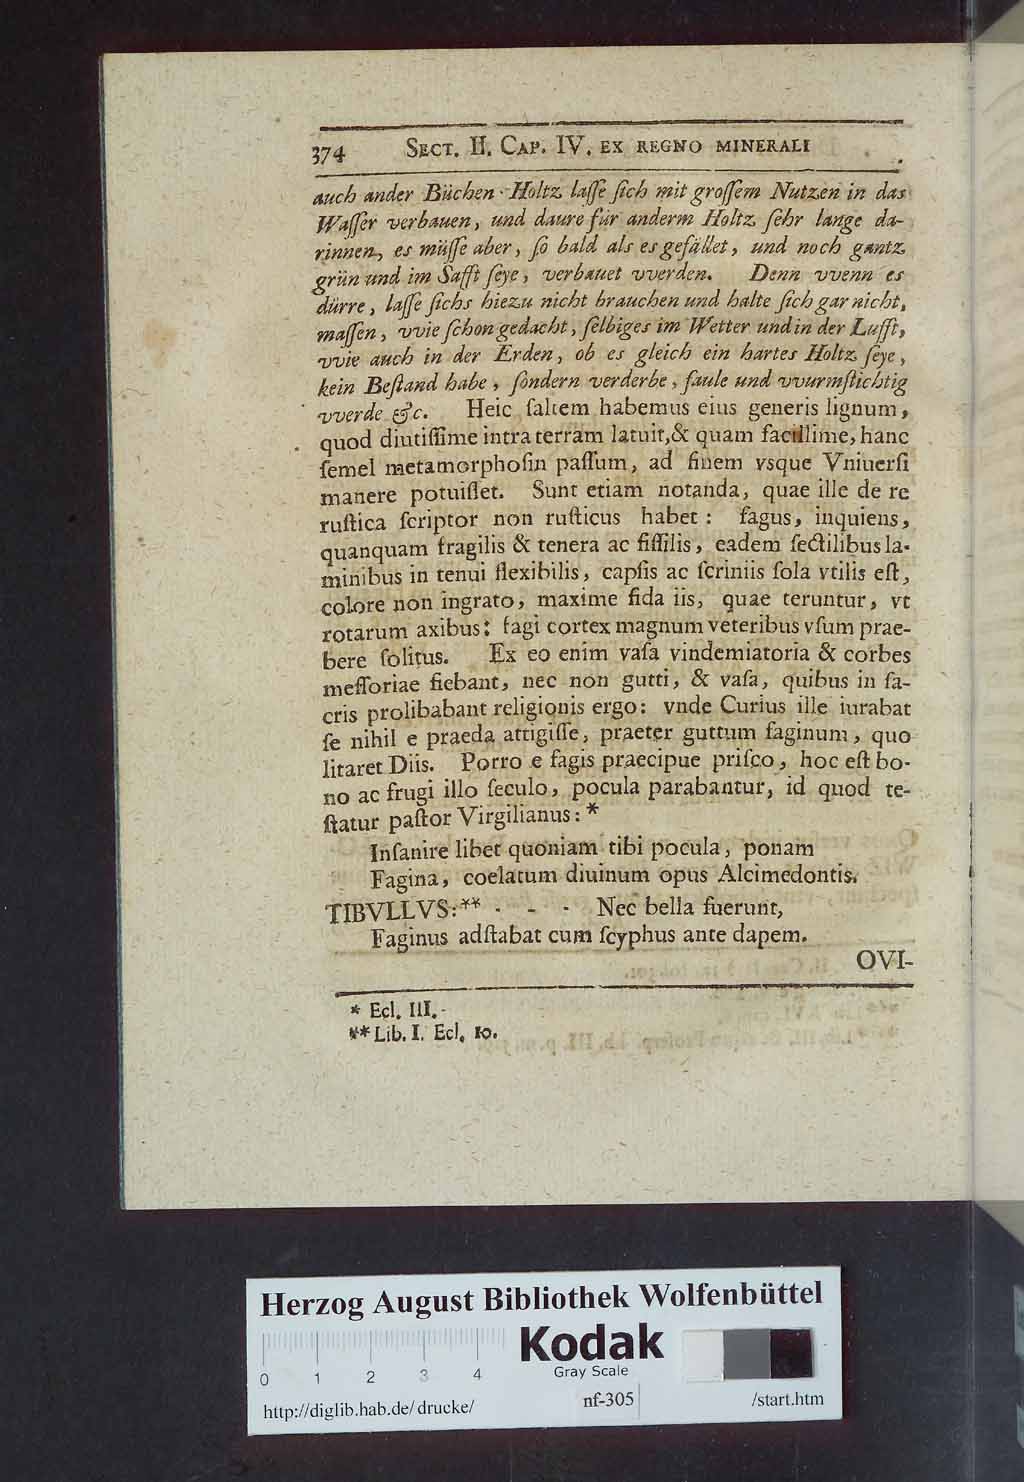 374 SECT. II. CAP. IV. EX REGNO MINERALI
auch ander Büchen-Holtz laſſe ſich mit groſſem Nutzen in das
Waſſer verbauen, und daure für anderm Holtz ſehr lange da-
rinnen, es müſſe aber, ſo bald als es gefället, und noch gantz
grün und im Safft ſeye, verbauet vverden. Denn vvenn es
dürre, laſſe ſichs hiezu nicht brauchen und halte ſich gar nicht,
maſſen, vvie ſchon gedacht, ſelbiges im Wetter und in der Lufft,
vvie auch in der Erden, ob es gleich ein hartes Holtz ſeye,
kein Beſtand habe, ſondern verderbe, faule und vvurmſtichtig
vverde &c. Heic ſaltem habemus eius generis lignum,
quod diutiſſime intra terram latuit, & quam facillime, hanc
ſemel metamorphoſin paſſum, ad finem vsque Vniuerſi
manere potuiſſet. Sunt etiam notanda, quae ille de re
ruſtica ſcriptor non ruſticus habet: fagus, inquiens,
quanquam fragilis & tenera ac fiſſilis, eadem ſectilibus la-
minibus in tenui flexibilis, capſis ac ſcriniis ſola vtilis eſt,
colore non ingrato, maxime fida iis, quae teruntur, vt
rotarum axibus: fagi cortex magnum veteribus vſum prae-
bere ſolitus. Ex eo enim vaſa vindemiatoria & corbes
meſſoriae fiebant, nec non gutti, & vaſa, quibus in ſa-
cris prolibabant religionis ergo: vnde Curius ille iurabat
ſe nihil e praeda attigiſſe, praeter guttum faginum, quo
litaret Diis. Porro e fagis praecipue priſco, hoc eſt bo-
no ac frugi illo ſeculo, pocula parabantur, id quod te-
ſtatur paſtor Virgilianus: *
Inſanire libet quoniam tibi pocula, ponam
Fagina, coelatum diuinum opus Alcimedontis.
TIBVLLVS:** - - - Nec bella fuerunt,
Faginus adſtabat cum ſcyphus ante dapem.
OVI-
* Ecl. III.
** Lib. I. Ecl. 10.
Herzog August Bibliothek Wolfenbüttel
Kodak
Gray Scale
0 1 2 3 4
http://diglib.hab.de/drucke/ nf-305 /start.htm